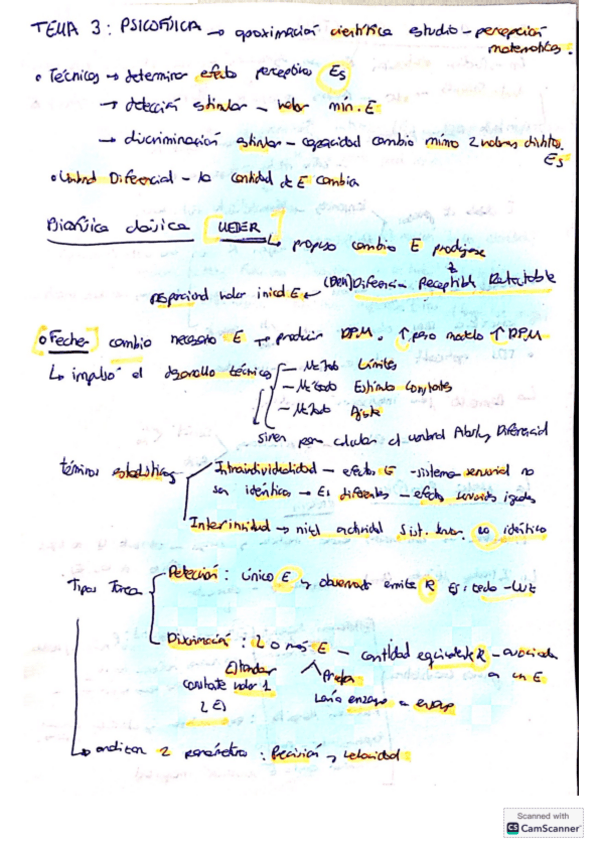 TEMA 3: PSICOFÍSICA → aproximación científica estudio - percepción
matemáticas.
• Técnicas → determinar efecto perceptivo Es
→ detección estímulo - valor mín. E
→ discriminación estímulo - capacidad cambio mínimo 2 valores distintos
Es
• Umbral Diferencial - la cantidad de E cambia
clásica [WEBER]
↳ propuso cambio E
proporcional valor inicial E ← Diferencia Perceptible Detectable
• Fechner cambio necesario E → producir DPM. ↑ ↑ DPM
↳ impulsó el desarrollo técnicas
- Método Límites
- Método Estímulo Constantes
- Método Ajuste
sirven para calcular el umbral Absoluto y Diferencial
términos estadísticos
Intraindividualidad - efectos E - sistema sensorial no
ser idénticos → Es diferentes - efectos sensoriales iguales
→ nivel actividad Sist. sensor. no idéntico
Tipos Tarea
Detección: único E y observador emite R Ej: - luz
Discriminación: 2 o más E - cantidad equivalente R - asociada
a un E
Estándar
constante valor 1
2 Es
Prueba
varía ensayo a ensayo
↳ analizan 2 parámetros: Precisión y velocidad
Scanned with
CS CamScanner